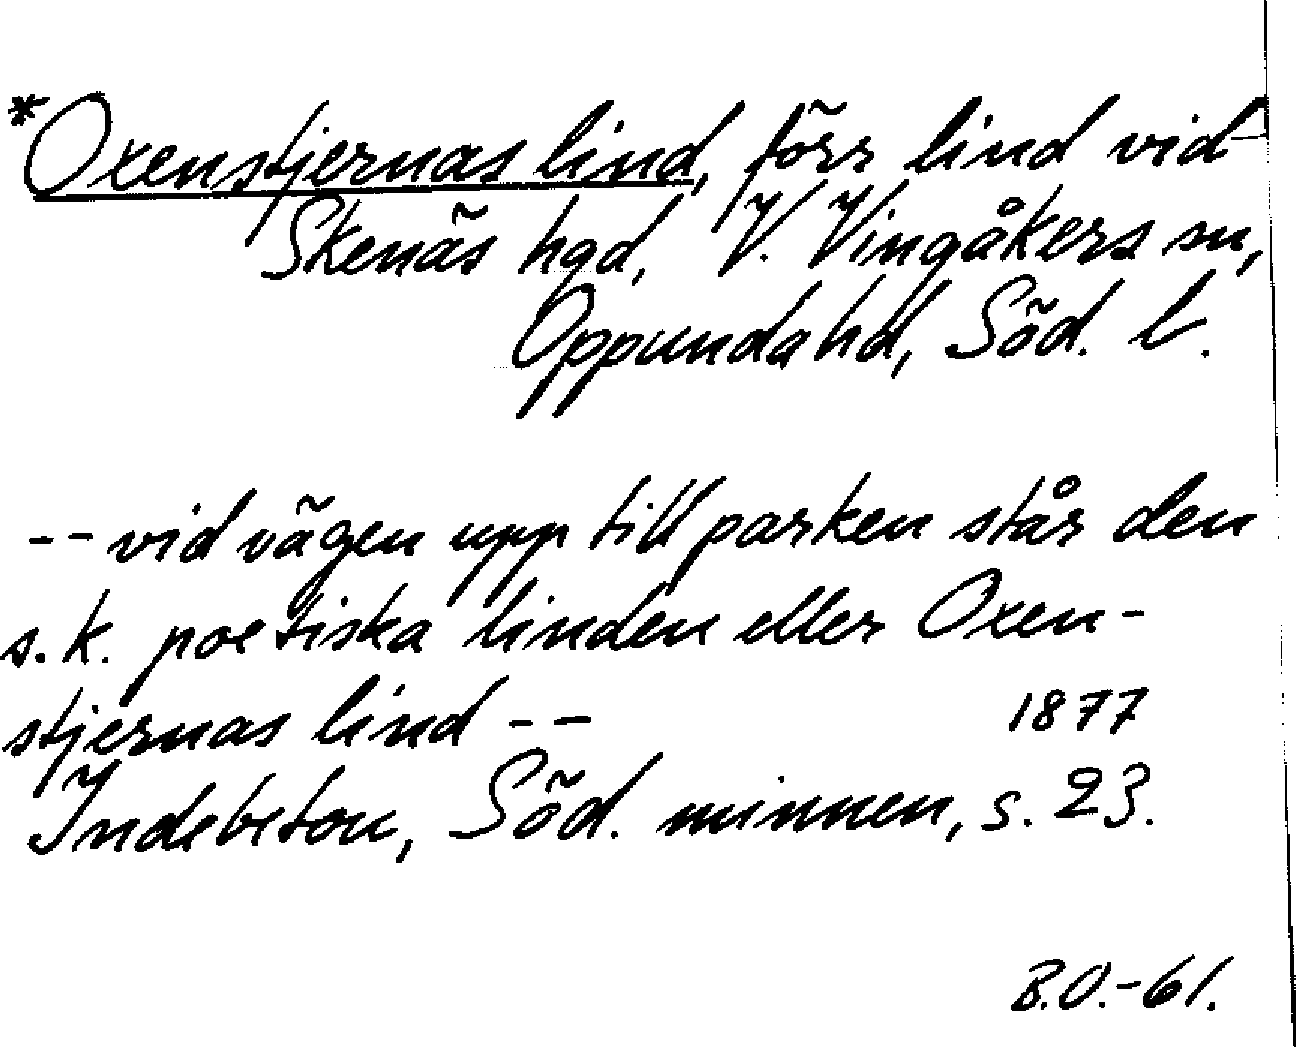 *Oxenstjernas lind, förr lind vid
Skenäs hgd, V. Vingåkers sn,
Oppunda hd, Söd. l.
-- vid vägen upp till parken står den
s.k. poetiska linden eller Oxen-
stjernas lind -- 1877
Indebetou, Söd. minnen, s. 23.
B.O.-61.